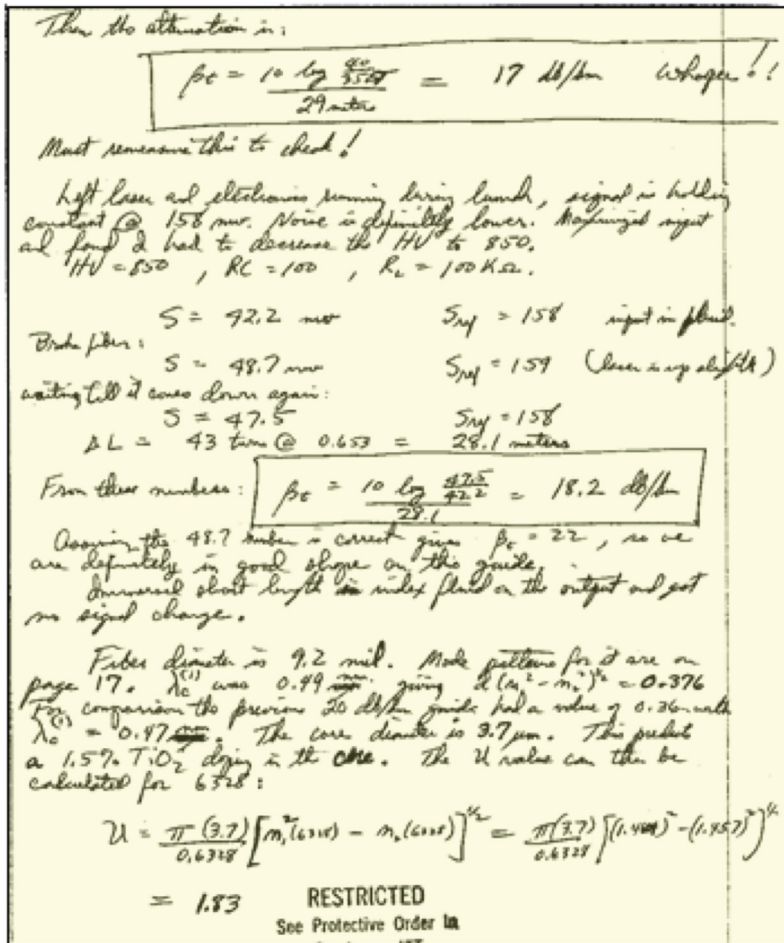 Then the attenuation is:
βt = 10 log 40/ / 29 meters = 17 db/km Whopee!!
Must remeasure this to check!
Left laser and electronics running during lunch, signal is holding
constant @ 158 mv. Noise is definitely lower. Maximized input
and found I had to decrease the HV to 850.
HV = 850 , RC = 100 , RL = 100 KΩ.
S = 42.2 mv Sref = 158 input in fluid.
Broke fiber:
S = 48.7 mv Sref = 159 (laser is up slightly)
waiting till it comes down again:
S = 47.5 Sref = 158
ΔL = 43 turns @ 0.653 = 28.1 meters
From these numbers: βt = 10 log 47.5/42.2 / 28.1 = 18.2 db/km
Assuming the 48.7 number is correct gives βt = 22, so we
are definitely in good shape on this guide.
Immersed short length in index fluid on the output and got
no signal change.
Fiber diameter is 9.2 mil. Mode patterns for it are on
page 17. λc(1) was 0.49 giving = 0.376
For comparison the previous 20 db/km guide had a value of 0.36 with
λc(1) = 0.47. The core diameter is 3.7 μm. This predicts
a 1.5% TiO2 doping in the core. The U value can then be
calculated for 6328:
U = π(3.7)/0.6328 [n1²(6328) - n2(6328)]^1/2 = π(3.7)/0.6328 [( )² - (1.457)²]^1/2
= 1.83 RESTRICTED
See Protective Order in